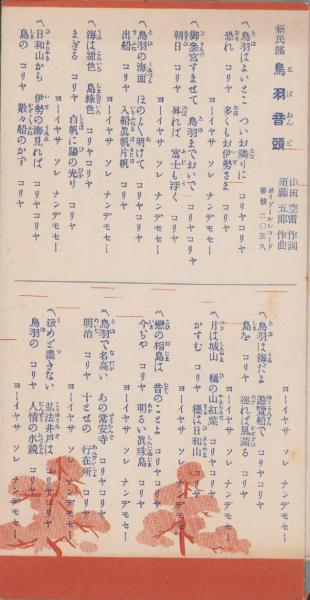 新民謡 鳥羽音頭
とばおんど
山田空雷 作詞
須藤五郎 作曲
ポリドールレコード
番號 二〇五九
〽鳥羽はよいとこ つひお隣りに コリヤコリヤ
恐れ コリヤ 多くもお伊勢さま コリヤ
ヨーイヤサ ソレ ナンデモセー
〽御参宮すませて 鳥羽までおいで コリヤコリヤ
朝日 コリヤ 昇れば 富士も浮く コリヤ
ヨーイヤサ ソレ ナンデモセー
〽鳥羽の海面 ほのぼの明けて コリヤコリヤ
出船 コリヤ 入船眞帆片帆 コリヤ
ヨーイヤサ ソレ ナンデモセー
〽海は紺色 島緑色 コリヤコリヤ
まぎる コリヤ 白帆に陽の光り コリヤ
ヨーイヤサ ソレ ナンデモセー
〽日和山から 伊勢の海見れば コリヤコリヤ
島の コリヤ 數々船のかず コリヤ
ヨーイヤサ ソレ ナンデモセー
〽鳥羽は海だよ 遊覽船で コリヤコリヤ
島を コリヤ 巡れば風薫る コリヤ
ヨーイヤサ ソレ ナンデモセー
〽月は城山 樋の山紅葉 コリヤコリヤ
かすむ コリヤ 櫻は日和山 コリヤ
ヨーイヤサ ソレ ナンデモセー
〽戀の相島は 昔のことよ コリヤコリヤ
今ぢや コリヤ 明るい眞珠島 コリヤ
ヨーイヤサ ソレ ナンデモセー
〽鳥羽で名高い あの常安寺 コリヤコリヤ
明治 コリヤ 十とせの 行在所 コリヤ
ヨーイヤサ ソレ ナンデモセー
〽汲めど盡きない 弘法井戸は コリヤコリヤ
鳥羽の コリヤ 人情の水鏡 コリヤ
ヨーイヤサ ソレ ナンデモセー